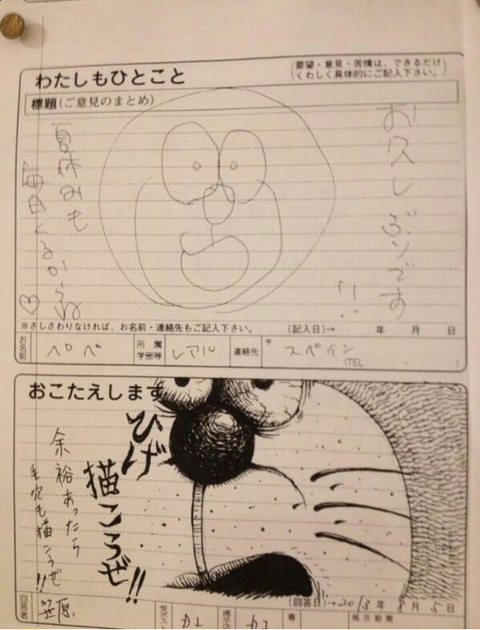 わたしもひとこと
要望・意見・苦情は、できるだけ
くわしく具体的にご記入下さい。
標題(ご意見のまとめ)
お久しぶりです!!
夏休みも
毎日くるからね♡
※さしさわりなければ、お名前・連絡先もご記入下さい。
(記入日)→ 年 月 日
お名前 ペペ 所属学部等 レアル 連絡先 〒 スペイン
(TEL )
おこたえします
ひげ
描こうぜ!!
余裕あったら
毛穴も描こうぜ!!
(回答日)→2013年8月5日
回答者 笠原